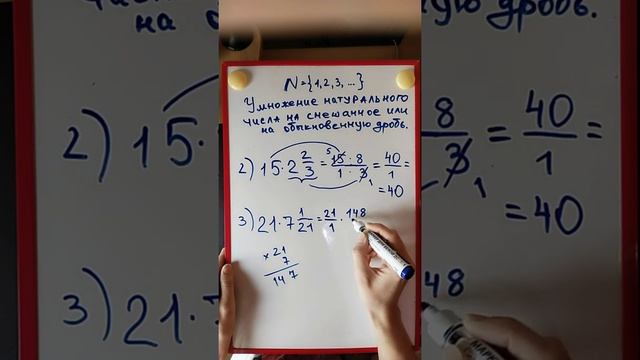 N = {1, 2, 3, ...}
Умножение натурального
числа на смешанное или
на обыкновенную дробь.
2) 15 · 2 2/3 = 15 · 8 / 1 · 3 = 40/1 =
5
1
= 40
3) 21 · 7 1/21 = 21/1 · 148
× 21
7
147